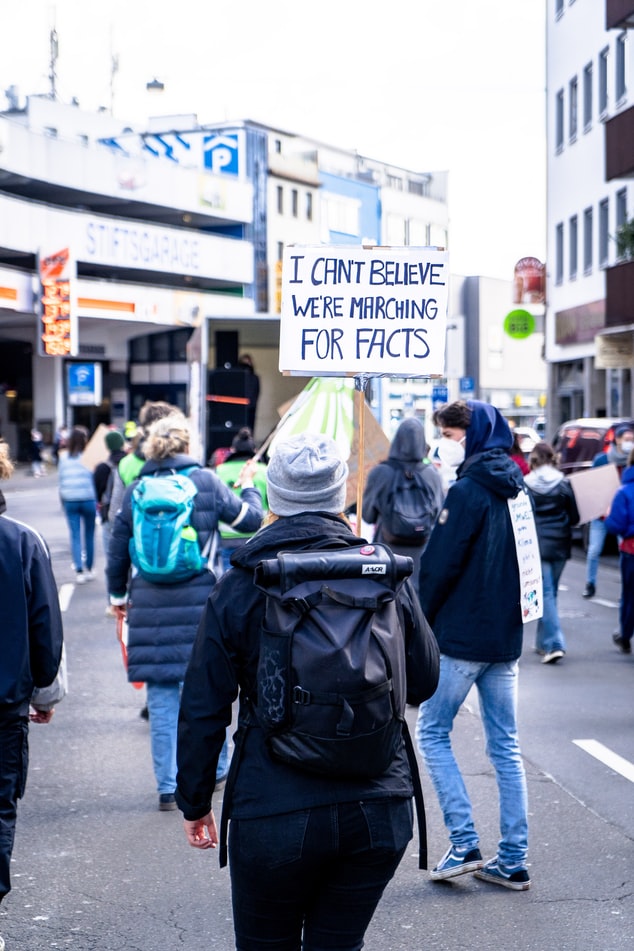 P
STIFTSGARAGE
I CAN'T BELIEVE
WE'RE MARCHING
FOR FACTS
BIO
AEVOR